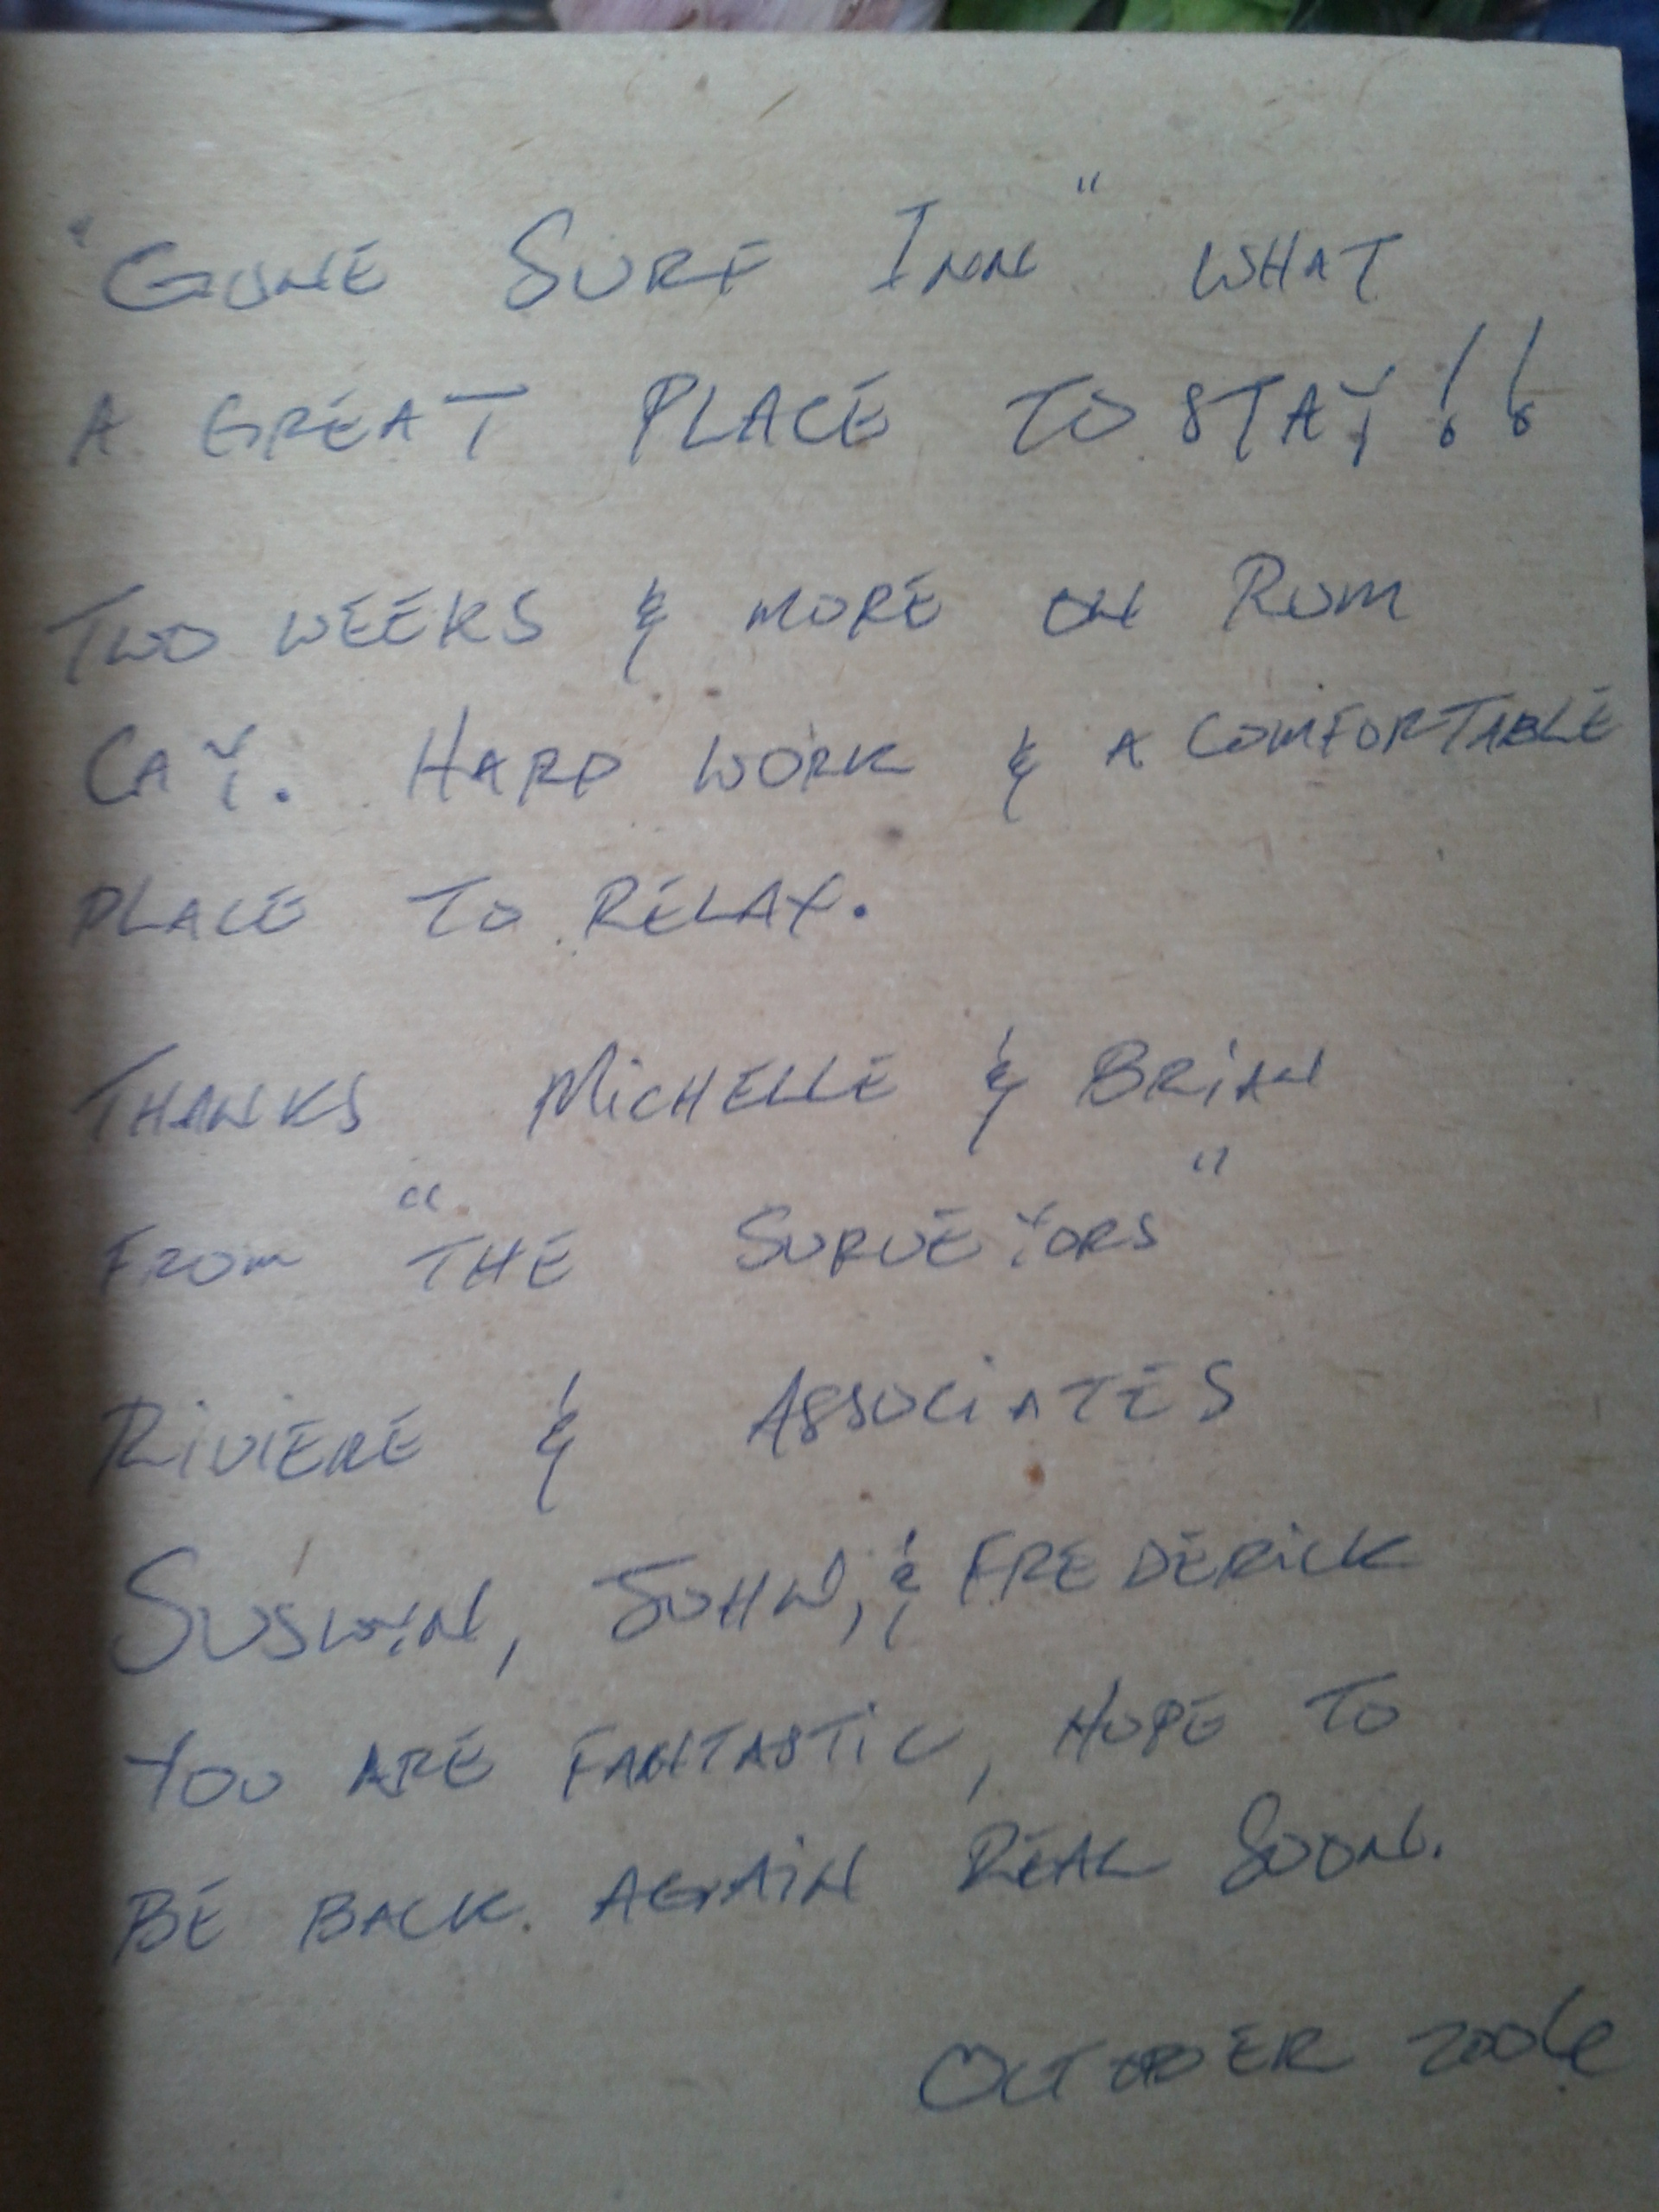 "GONE SURF INN" WHAT
A GREAT PLACE TO STAY!!
TWO WEEKS & MORE ON RUM
CAY. HARD WORK & A COMFORTABLE
PLACE TO RELAX.
THANKS MICHELLE & BRIAN
FROM "THE SURVEYORS"
RIVIERE & ASSOCIATES
SUSWIN, JOHN, & FREDERICK
YOU ARE FANTASTIC, HOPE TO
BE BACK AGAIN REAL SOON.
OCTOBER 2006